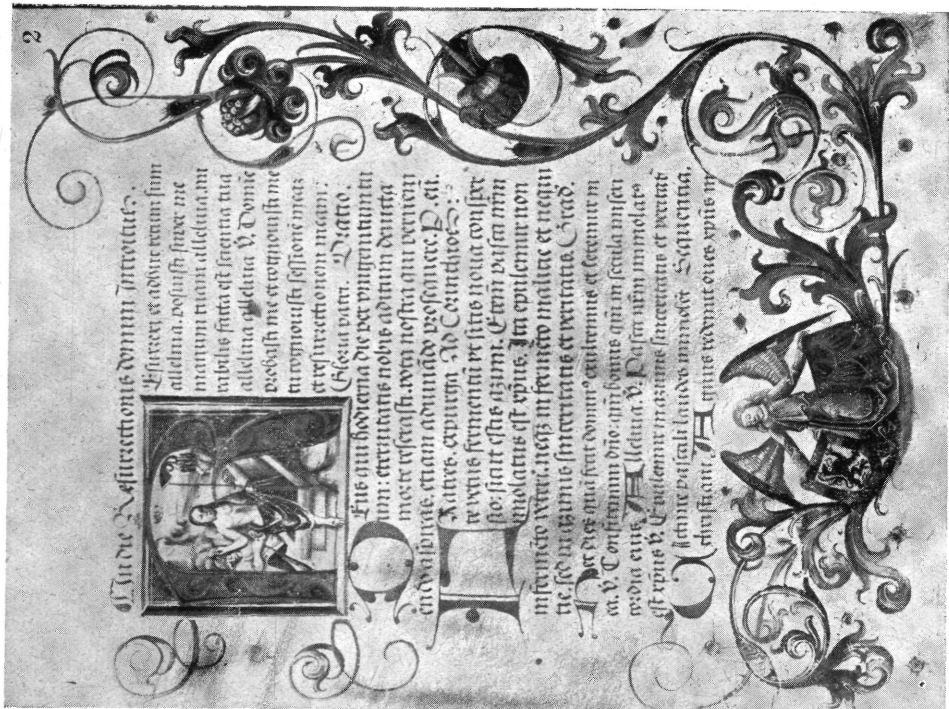 2
In die Resurrectionis domini introitus
R
Esurrexi et adhuc tecum sum
alleluia. posuisti super me
manum tuam alleluia. mi
rabilis facta est scientia tua
alleluia alleluia V. Domie
probasti me et cognouisti me
tu cognouisti sessionē meaʒ
et resurrectionem meam:
Gloria patri. Oratio.
D Eus qui hodierna die per vnigenitū tuū
nobis aditum deuicta
morte reserasti. vota nostra que preueni
endo aspiras. etiam adiuuādo prosequere. P. eū.
F Ratres. expurgate Ad Corinthios:
vetus fermentū vt sitis noua consper
sio: sicut estis azimi. Etenī pascha nrm
immolatus est xp̄us. Ita epulemur non
in fermēto veteri. neqʒ in fermēto malitie et nequi
tie. sed in azimis sinceritatis et veritatis. Grad.
H ec dies quā fecit domin⁹ exultemus et letemur in
ea. V. Confitemini dn̄o qm̄ bonus qm̄ in seculum
eius. A lleluia V. Pascha nr̄m immolat⁹
est xp̄us V. Epulemur in azimis sinceritatis et veritatis
V ictime paschali laudes immolēt Sequentia.
christiani. A gnus redemit oues xp̄us in